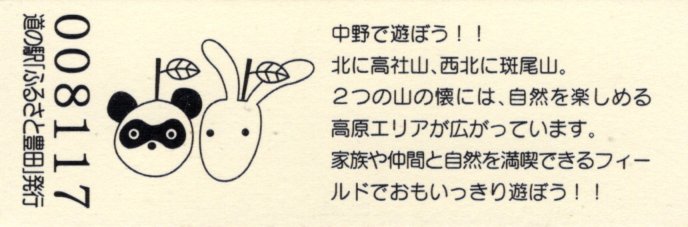 008117
道の駅「ふるさと豊田」発行
中野で遊ぼう！！
北に高社山、西北に斑尾山。
２つの山の懐には、自然を楽しめる
高原エリアが広がっています。
家族や仲間と自然を満喫できるフィー
ルドでおもいっきり遊ぼう！！